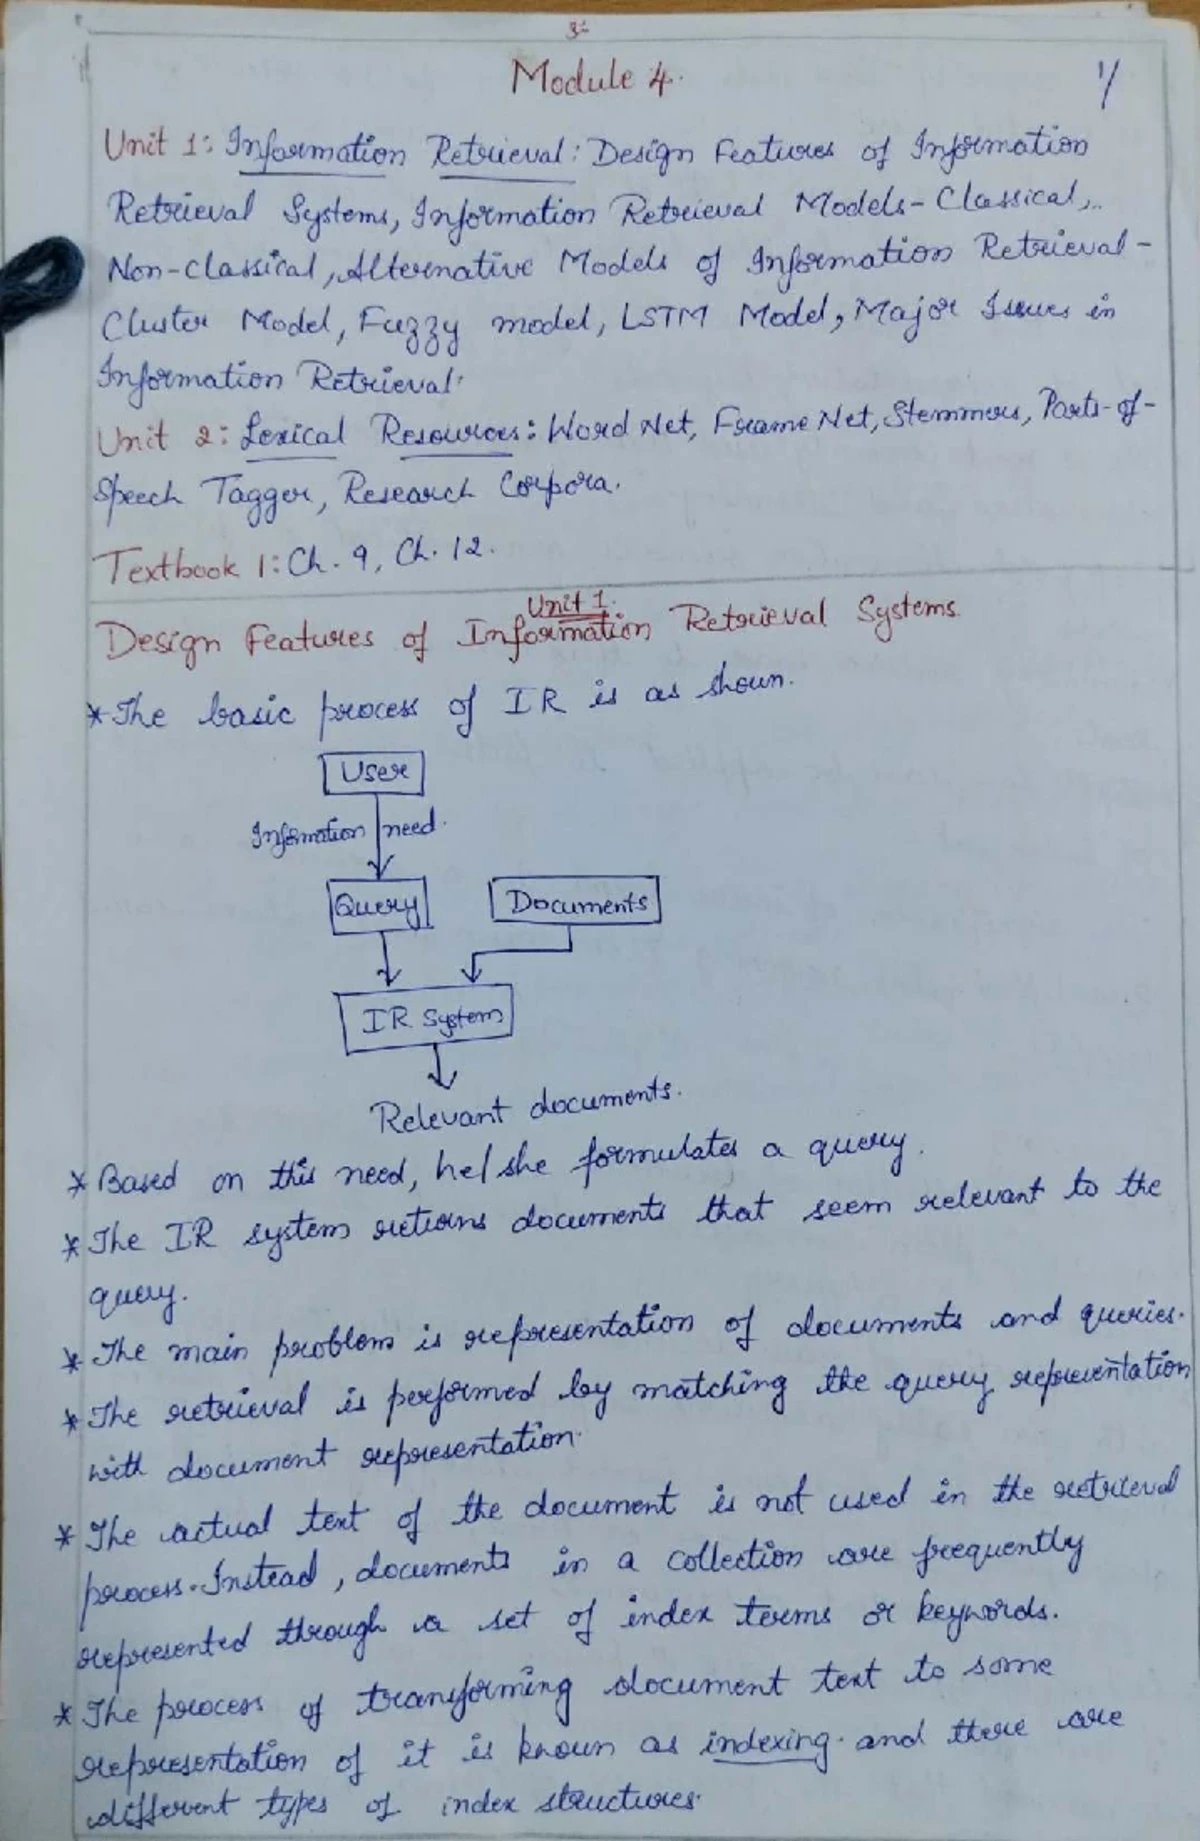 Module 4.
1/
Unit 1: Information Retrieval: Design Features of Information
Retrieval Systems, Information Retrieval Models- Classical,
Non-classical, Alternative Models of Information Retrieval -
Cluster Model, Fuzzy model, LSTM Model, Major Issues in
Information Retrieval.
Unit 2: Lexical Resources: Word Net, Frame Net, Stemmers, Parts-of-
Speech Tagger, Research Corpora.
Textbook 1: Ch. 9, Ch. 12.
Unit 1.
Design Features of Information Retrieval Systems.
* The basic process of IR is as shown.
User
Information need.
Query
Documents
IR System
Relevant documents.
* Based on this need, he/she formulates a query.
* The IR system returns documents that seem relevant to the
query.
* The main problem is representation of documents and queries.
* The retrieval is performed by matching the query representation
with document representation.
* The actual text of the document is not used in the retrieval
process. Instead, documents in a collection are frequently
represented through a set of index terms or keywords.
* The process of transforming document text to some
representation of it is known as indexing. and there are
different types of index structures.